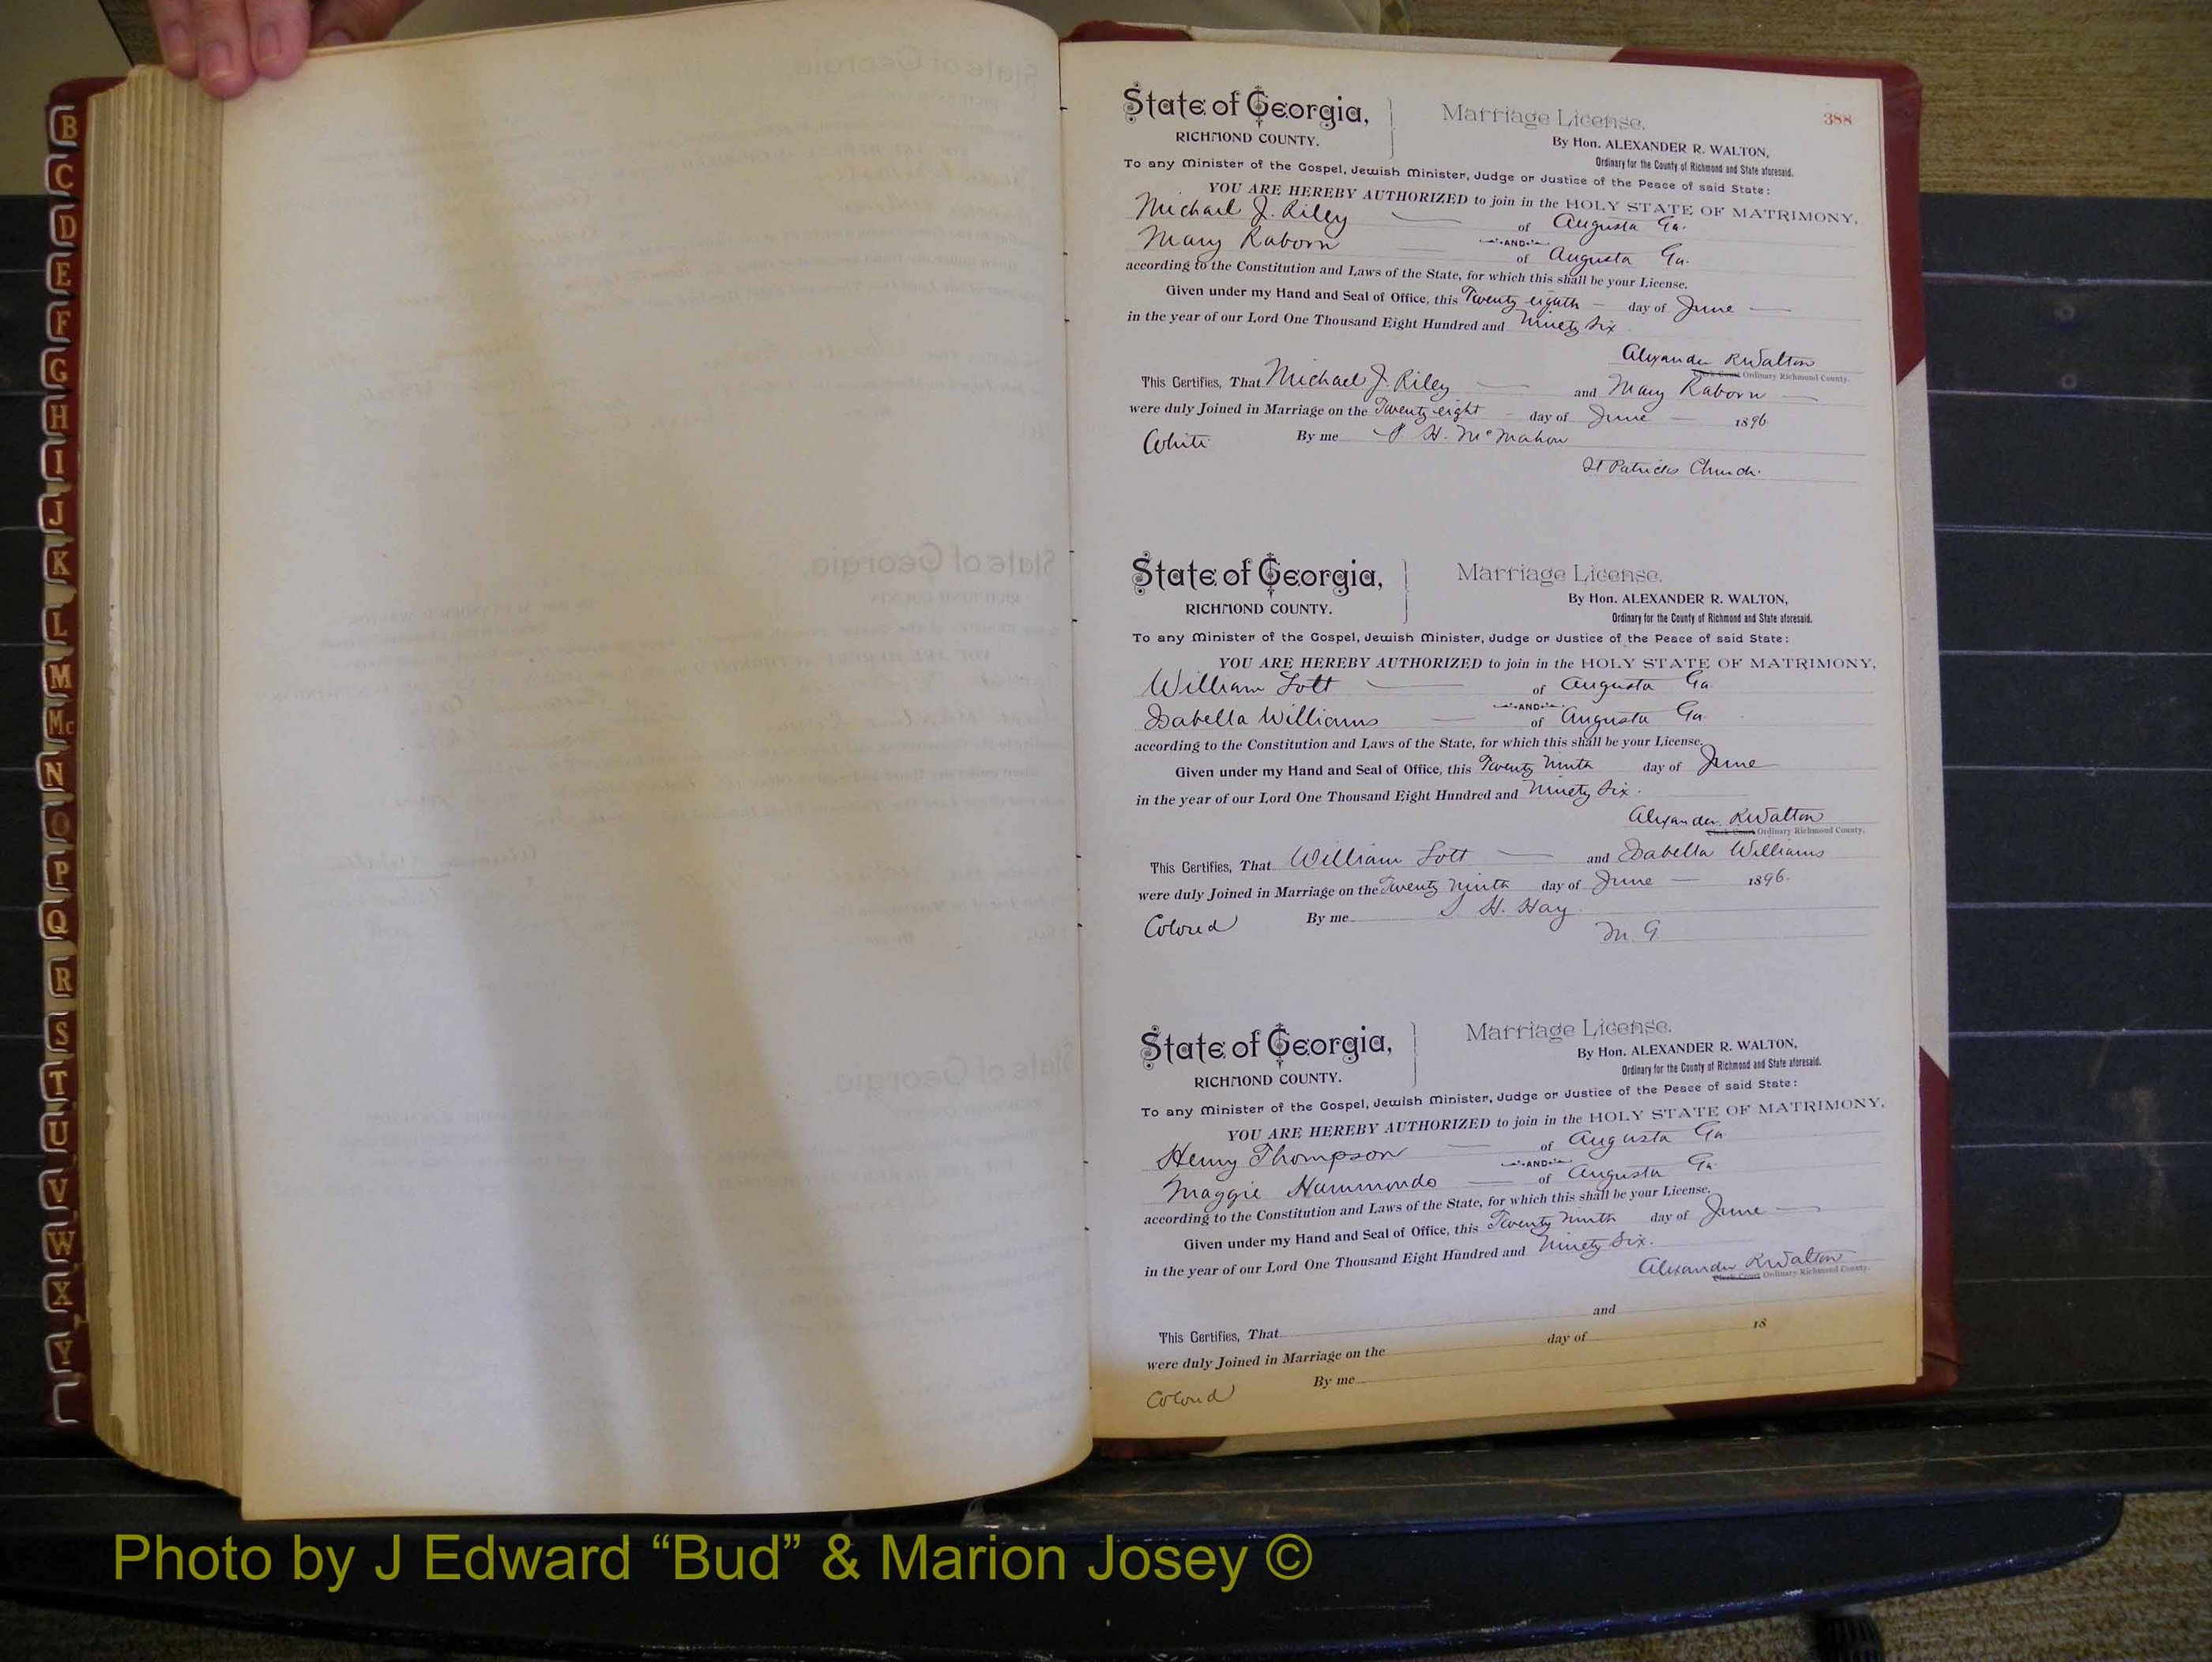 B
C
D
E
F
G
H
I
J
K
L
M
Mc
N
O
P
Q
R
S
T
U
V
W
X
Y
388
State of Georgia, Marriage License.
RICHMOND COUNTY. By Hon. ALEXANDER R. WALTON,
Ordinary for the County of Richmond and State aforesaid.
To any Minister of the Gospel, Jewish Minister, Judge or Justice of the Peace of said State:
YOU ARE HEREBY AUTHORIZED to join in the HOLY STATE OF MATRIMONY,
Michael J. Riley of Augusta Ga.
AND
Mary Raborn of Augusta Ga.
according to the Constitution and Laws of the State, for which this shall be your License.
Given under my Hand and Seal of Office, this Twenty eighth day of June
in the year of our Lord One Thousand Eight Hundred and Ninety Six
Alexander R Walton
Clerk Court Ordinary Richmond County.
This Certifies, That Michael J. Riley and Mary Raborn
were duly Joined in Marriage on the Twenty eight day of June 1896
White By me P. H. McMahon
St Patricks Church.
State of Georgia, Marriage License.
RICHMOND COUNTY. By Hon. ALEXANDER R. WALTON,
Ordinary for the County of Richmond and State aforesaid.
To any Minister of the Gospel, Jewish Minister, Judge or Justice of the Peace of said State:
YOU ARE HEREBY AUTHORIZED to join in the HOLY STATE OF MATRIMONY,
William Lott of Augusta Ga.
AND
Isabella Williams of Augusta Ga.
according to the Constitution and Laws of the State, for which this shall be your License.
Given under my Hand and Seal of Office, this Twenty Ninth day of June
in the year of our Lord One Thousand Eight Hundred and Ninety Six.
Alexander R Walton
Clerk Court Ordinary Richmond County.
This Certifies, That William Lott and Isabella Williams
were duly Joined in Marriage on the Twenty Ninth day of June 1896.
Colored By me H. Hay
M. G.
State of Georgia, Marriage License.
RICHMOND COUNTY. By Hon. ALEXANDER R. WALTON,
Ordinary for the County of Richmond and State aforesaid.
To any Minister of the Gospel, Jewish Minister, Judge or Justice of the Peace of said State:
YOU ARE HEREBY AUTHORIZED to join in the HOLY STATE OF MATRIMONY,
Henry Thompson of Augusta Ga
AND
Maggie Hammonds of Augusta Ga.
according to the Constitution and Laws of the State, for which this shall be your License.
Given under my Hand and Seal of Office, this Twenty Ninth day of June
in the year of our Lord One Thousand Eight Hundred and Ninety Six.
Alexander R Walton
Clerk Court Ordinary Richmond County.
This Certifies, That and
were duly Joined in Marriage on the day of 18
Colored By me
Photo by J Edward “Bud” & Marion Josey ©